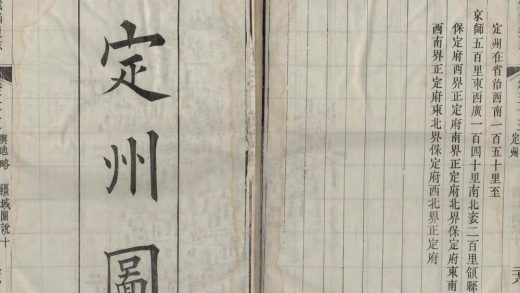 定州在省治西南一百五十里至
京師五百里東西廣一百四十里南北袤二百里領縣
保定府西界正定府南界正定府北界保定府東南
西南界正定府東北界保定府西北界正定府
定州圖
輿地略
疆域圖說十
定州